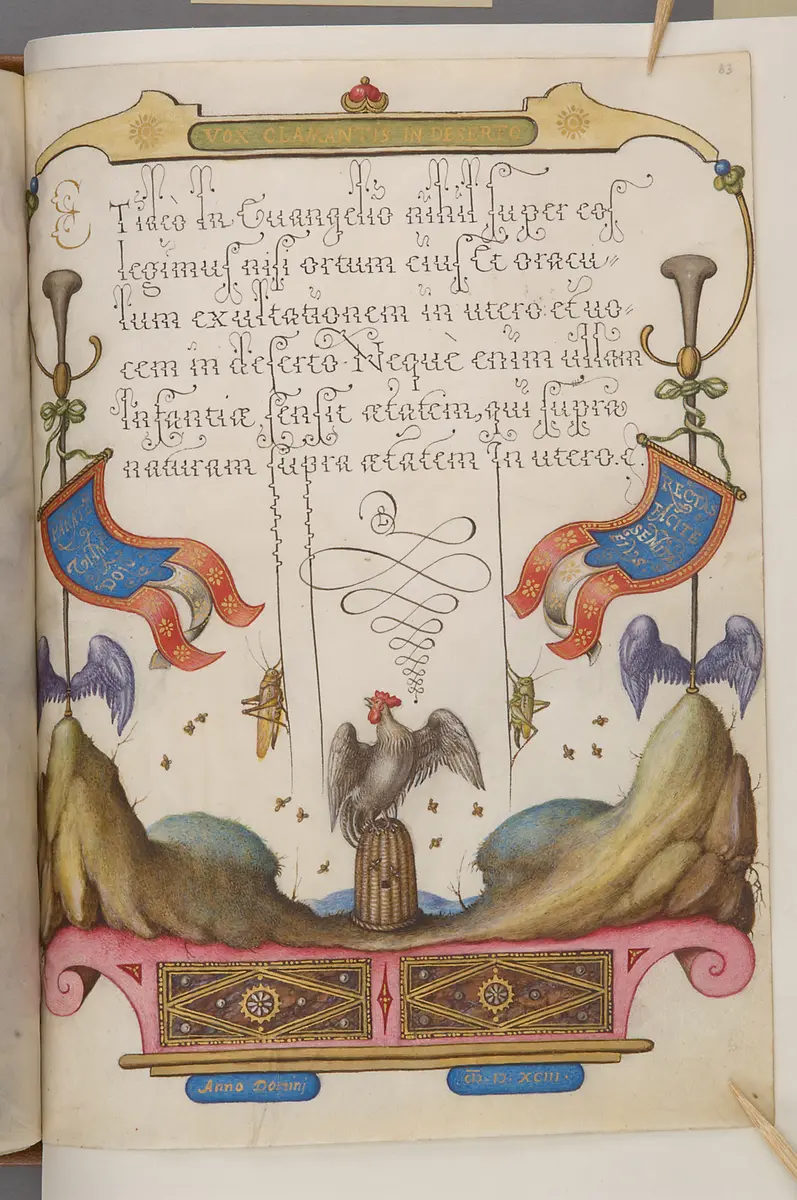 83
VOX CLAMANTIS IN DESERTO
ETideo In Euangelio nihil super eos
legimus nisi ortum eius Et oracu=
lum exultationem in utero et uo=
cem in deserto. Nequè enim ullam
Infantiæ sensit ætatem, qui supra
naturam supra ætatem In utero. &.
PARATE
VIAM
DOI
RECTAS
FACITE
SEMITAS
EIUS
Anno Domini
XCIII